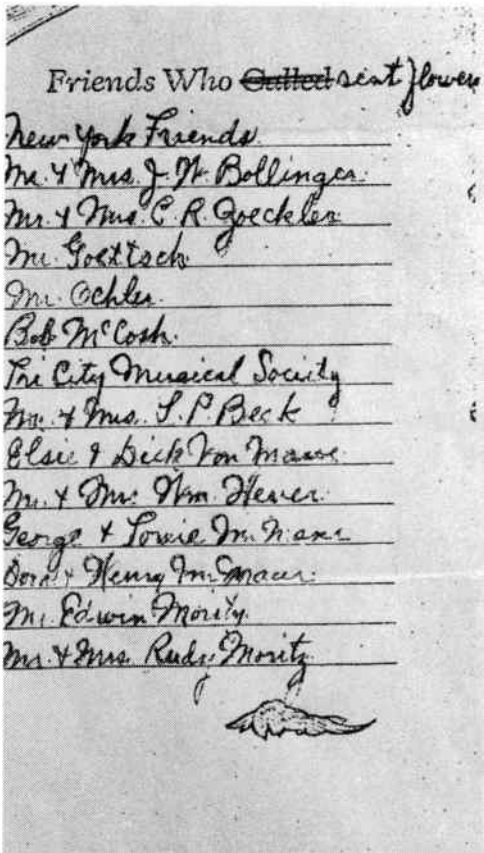 Friends Who Called sent flowers
New York Friends
Mr. & Mrs. J. W. Bollinger
Mr. & Mrs. C. R. Goeckler
Mr. Goettsch
Mr. Ochler
Bob McCosh
Tri City Musical Society
Mr. & Mrs. S. P. Beck
Elsie & Dick Von Maur
Mr. & Mrs. Wm. Hever
George &
Dora & Henry
Mr. Edwin Moritz
Mr. & Mrs. Rudy Moritz